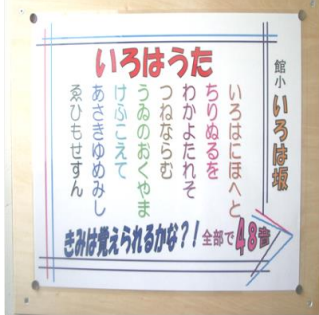 館小 いろは坂
いろはうた
いろはにほへと
ちりぬるを
わかよたれそ
つねならむ
うゐのおくやま
けふこえて
あさきゆめみし
ゑひもせすん
きみは覚えられるかな?!
全部で48音